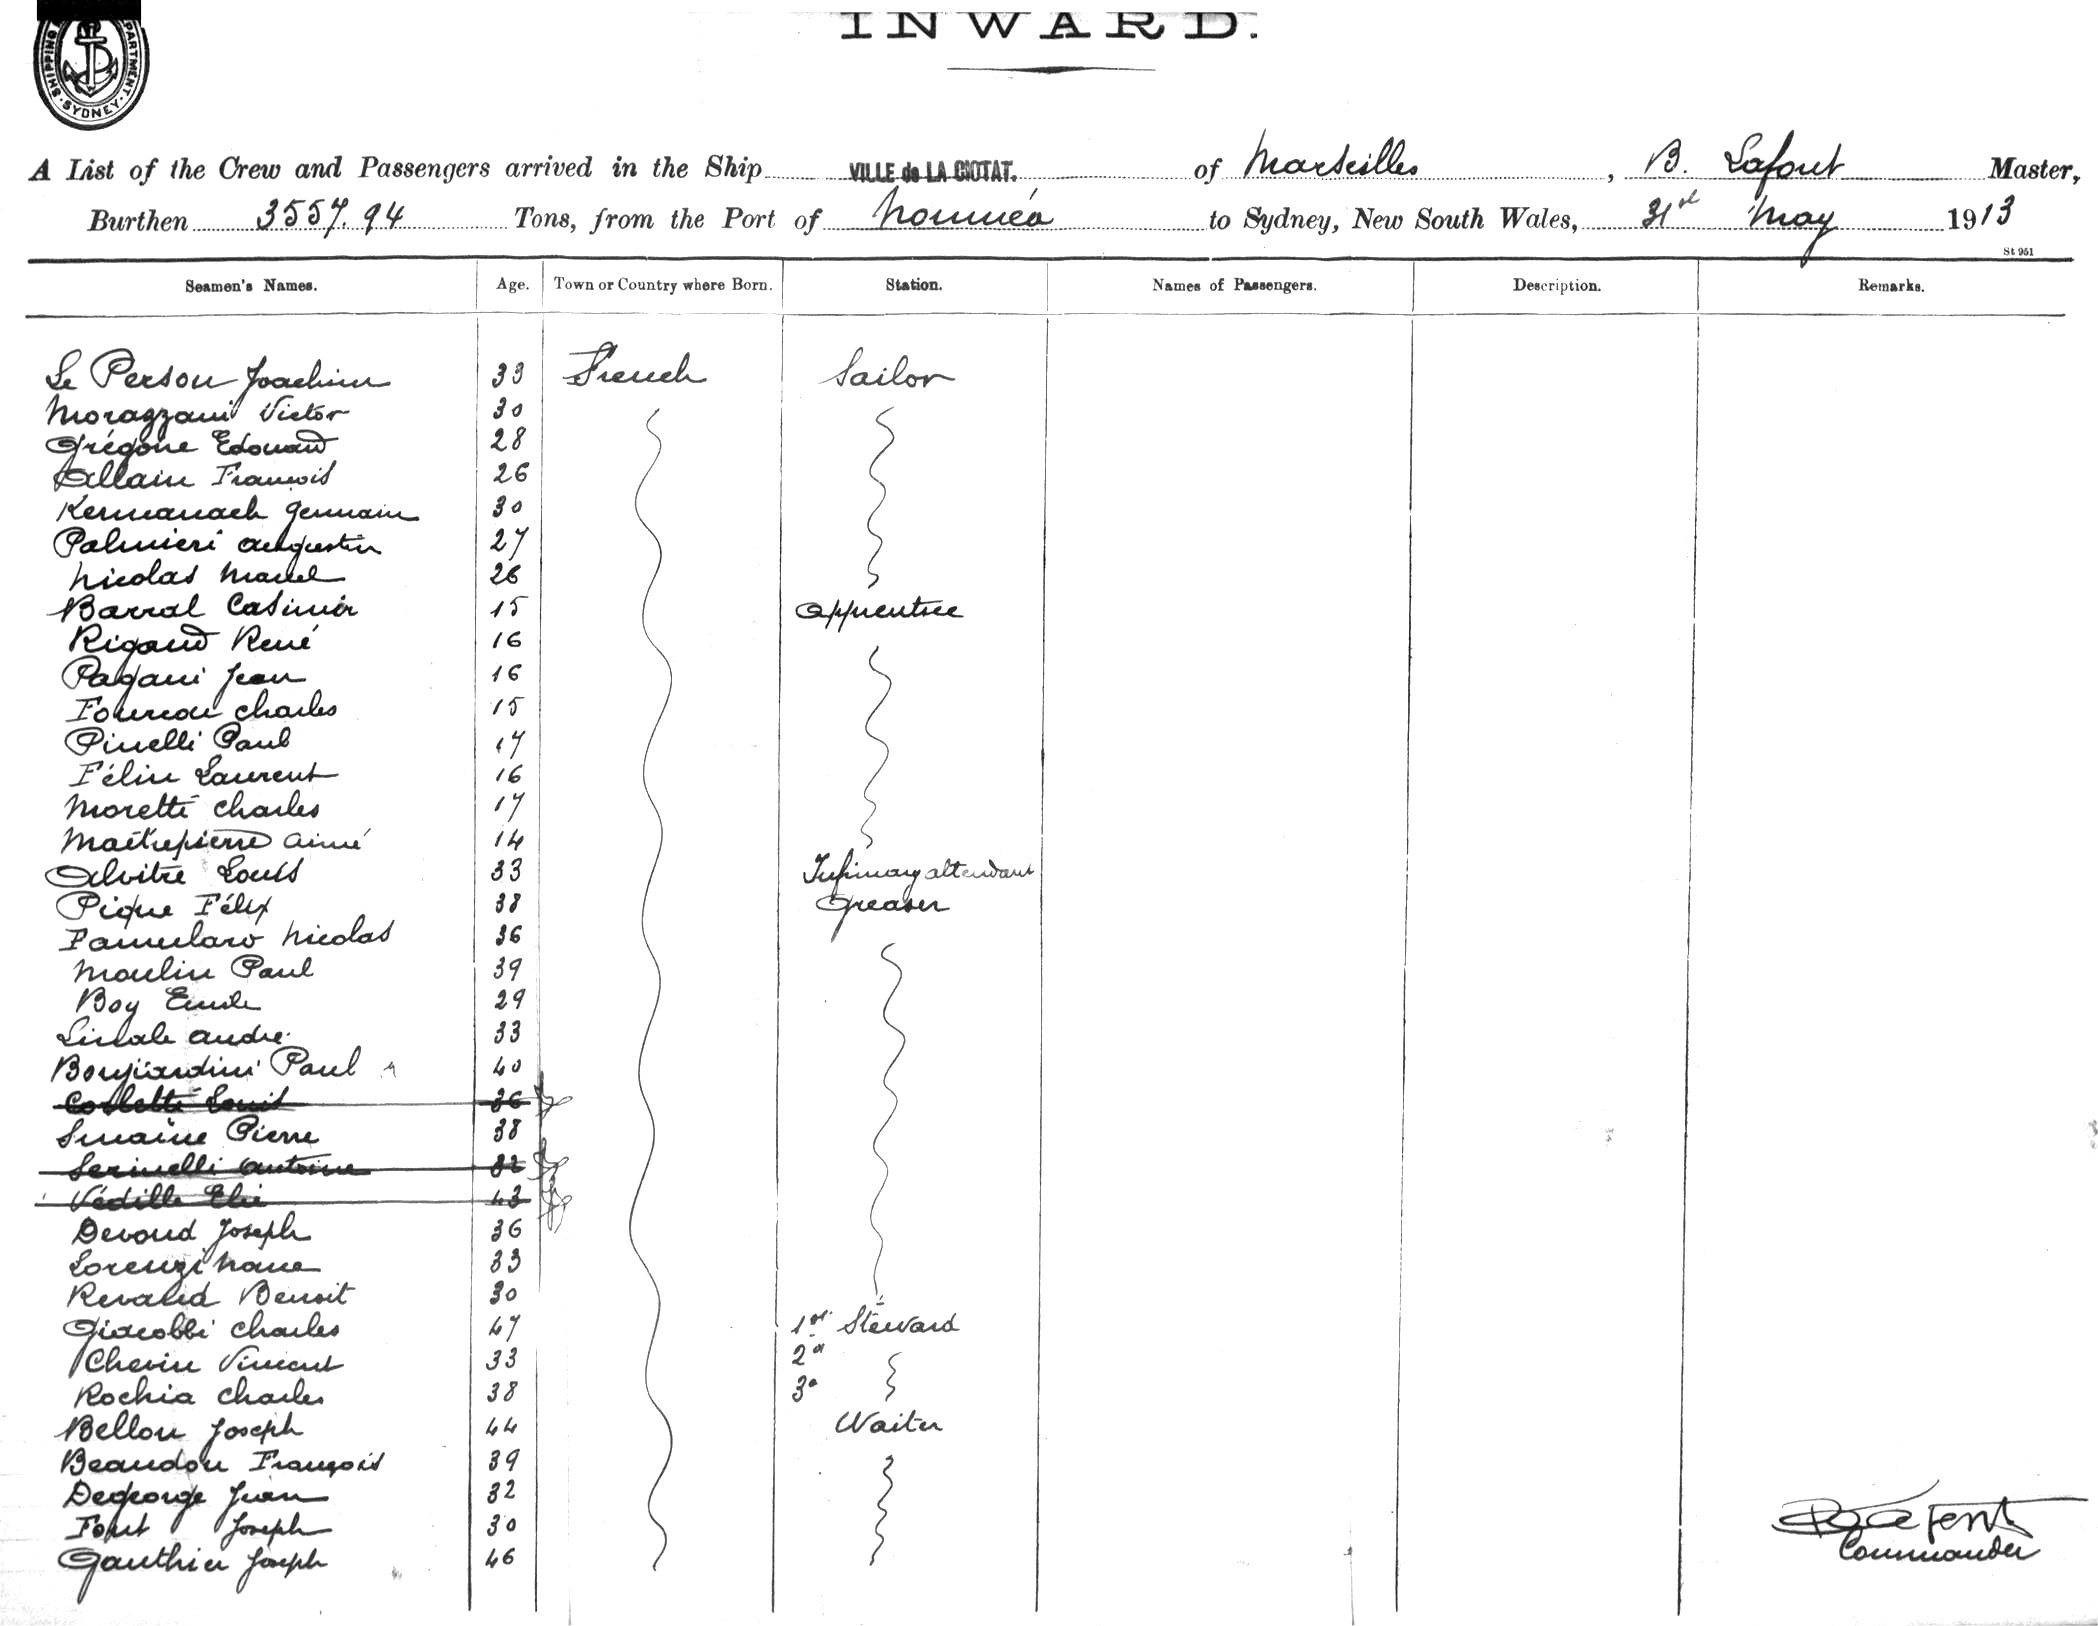 SHIPPING DEPARTMENT. SYDNEY
INWARD.
A List of the Crew and Passengers arrived in the Ship VILLE de LA CIOTAT. of Marseilles, B. Lafont Master,
Burthen 3557.94 Tons, from the Port of Nouméa to Sydney, New South Wales, 31st May 1913
St 951
Seamen's Names. Age. Town or Country where Born. Station. Names of Passengers. Description. Remarks.
Le Person Joachim 33 French Sailor
Moraggani Victor 30
Grégoire Edouard 28
Allain François 26
Kermanach Germain 30
Palmieri Augustin 27
Nicolas Marcel 26
Barral Casimir 15 Apprentice
Rigaud René 16
Pagani Jean 16
Fourcou Charles 15
Pinelli Paul 17
Félin Laurent 16
Moretti Charles 17
Maîtrepierre Aimé 14
Alvitre Louis 33 Infirmary attendant
Pique Félix 38 Greaser
Famularo Nicolas 36
Moulin Paul 39
Boy Emile 29
André 33
Bonjiardini Paul 40
Colletti Louis 36
Smaïne Pierre 38
Serinelli Antoine 32
Védille Elie 43
Devoud Joseph 36
Lorenzi 33
Revalid Benoit 30
Giacobbi Charles 47 1st Steward
Chevin Vincent 33 2d
Rochia Charles 38 3d
Bellon Joseph 44 Waiter
Beaudou François 39
Degeorge Jean 32
Font Joseph 30
Gauthier Joseph 46
B Lafont
Commander